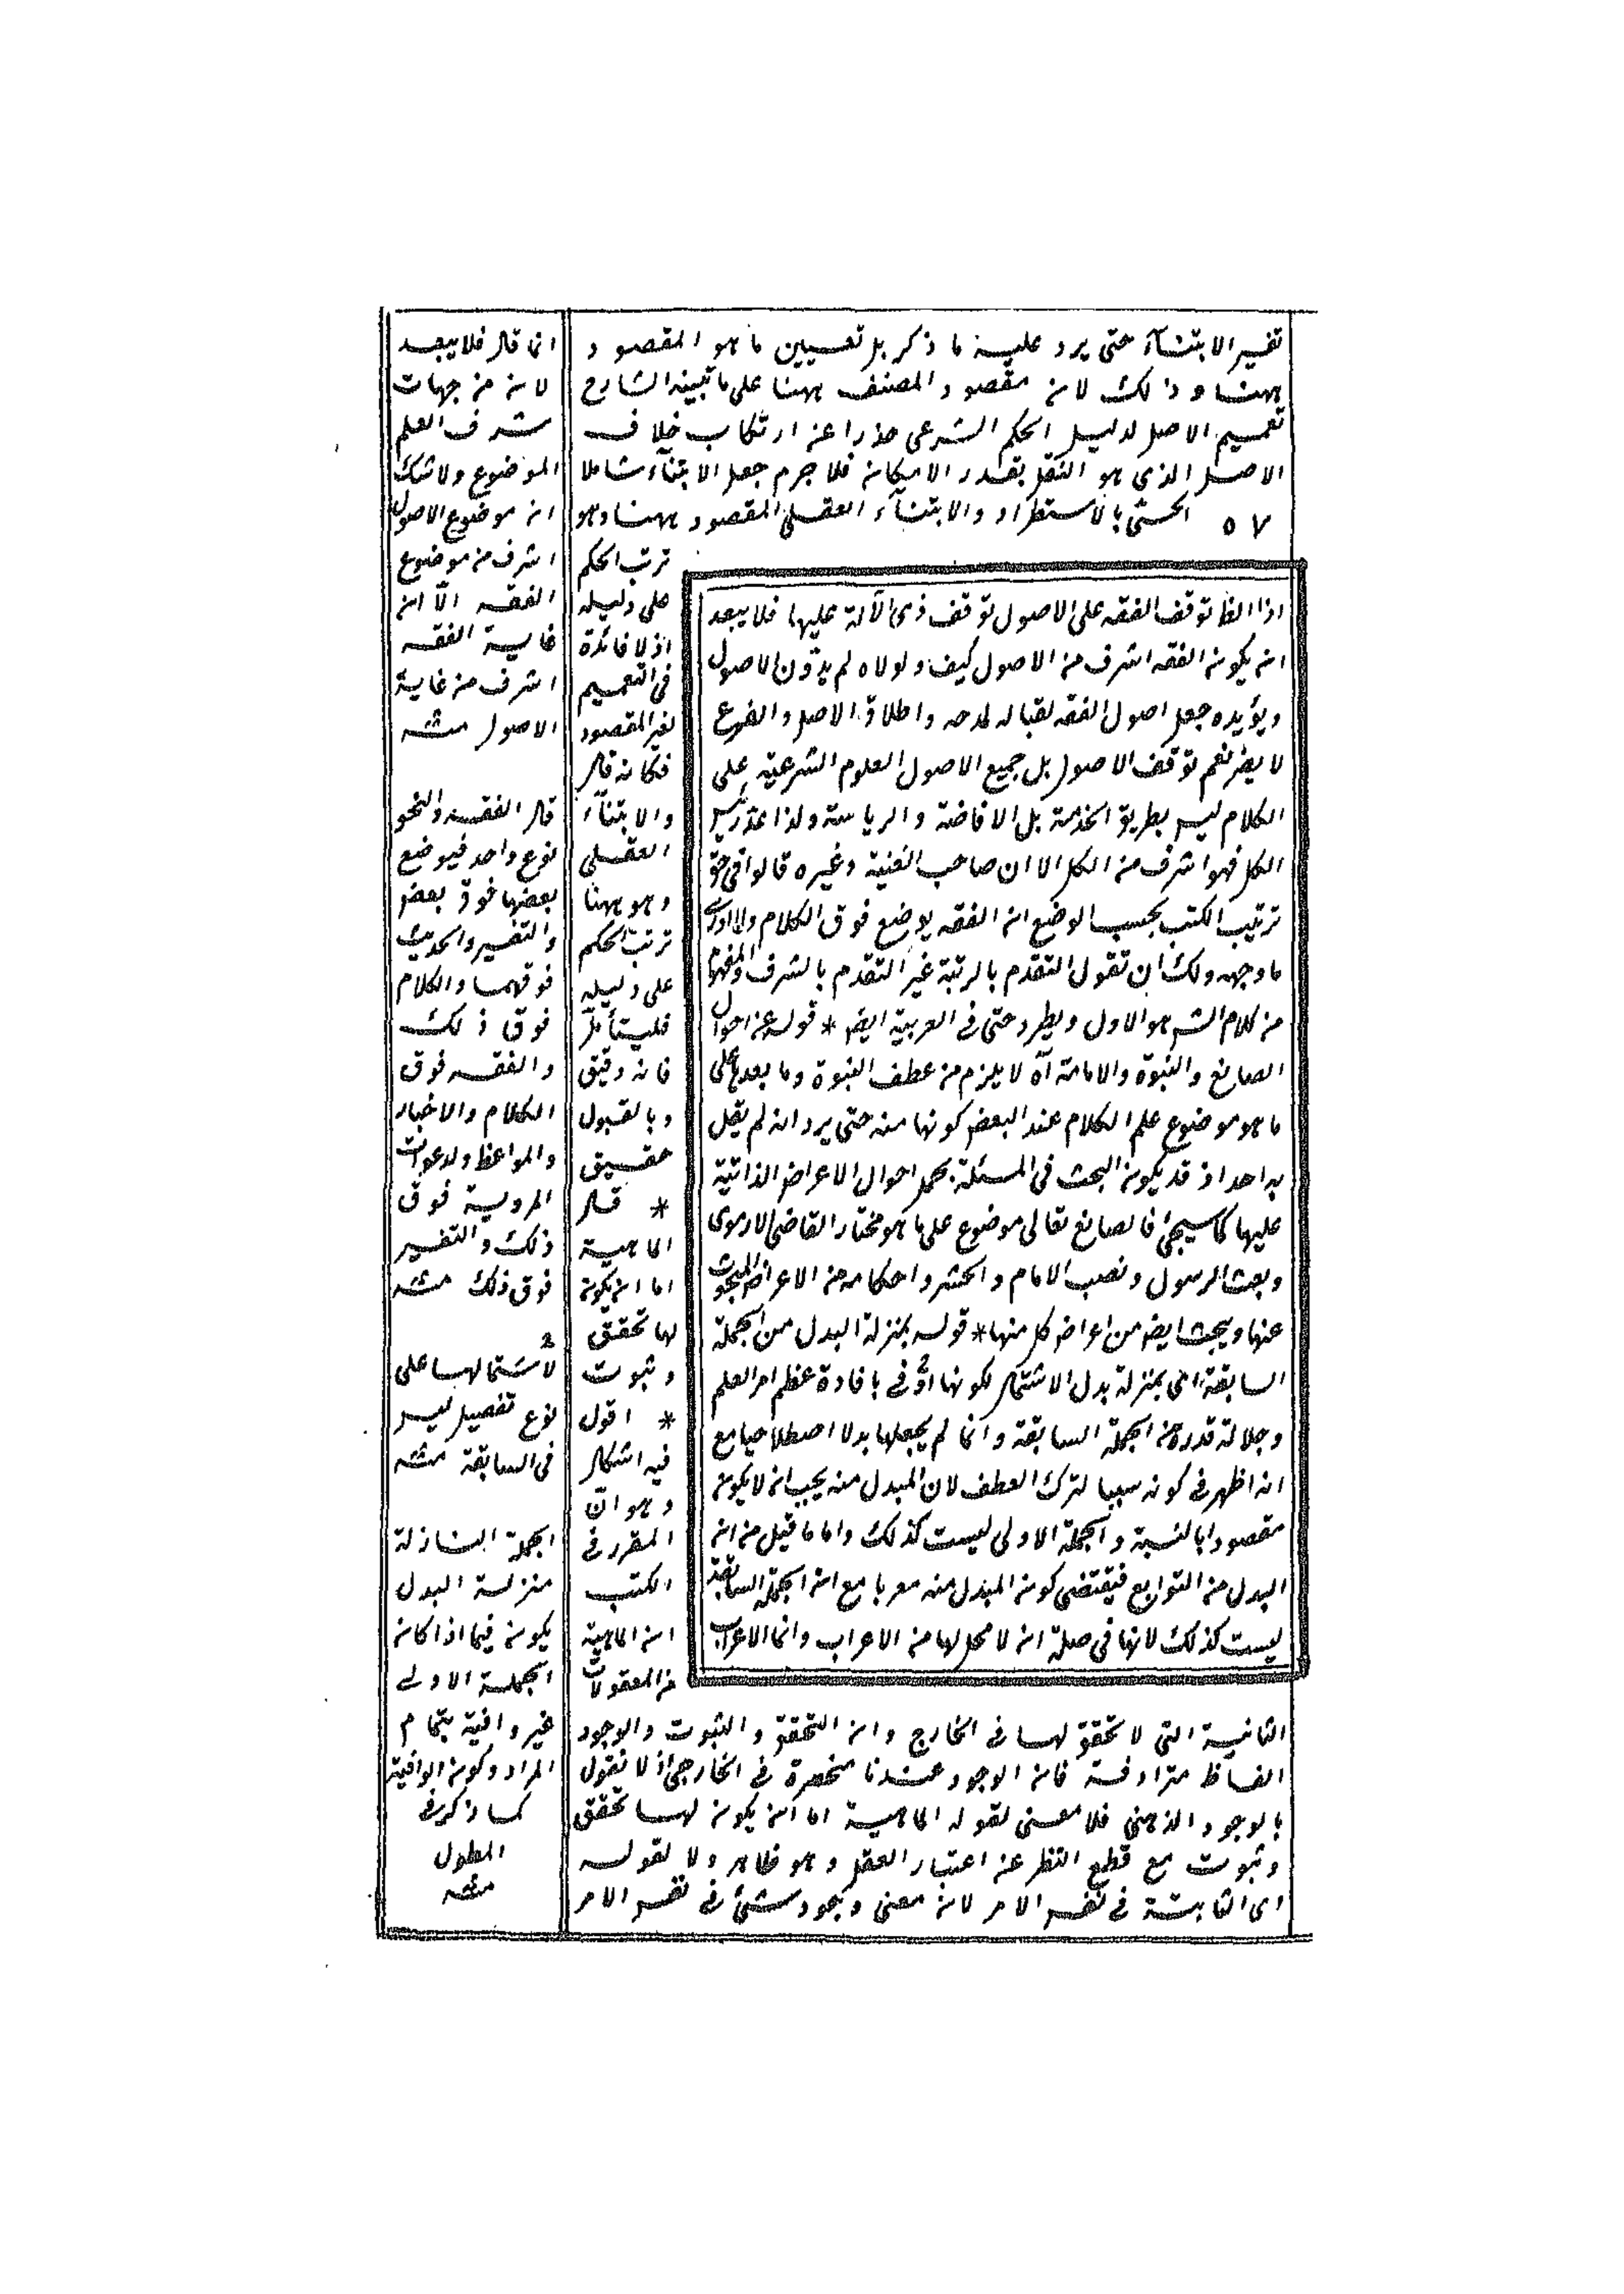 تفسير الابتناء حتى يرد عليه ما ذكر بل تعيين ما هو المقصود
ههنا وذلك لان مقصود المصنف ههنا على ما تبينه الشارح
تعميم الاصل لدليل الحكم الشرعى حذرا عن ارتكاب خلاف
الاصل الذى هو النقل بقدر الامكان فلا جرم جعل الابتناء شاملا
الحسى بالاستطراد والابتناء العقلى المقصود ههنا وهو
٥٧
ترتب الحكم
على دليله
اذ لا فائدة
فى التعميم
لغير المقصود
فكانه قال
والابتناء
العقلى
وهو ههنا
ترتب الحكم
على دليله
فليتأمل
فانه دقيق
وبالقبول
حقيق
* قال
الماهية
اما ان يكون
لها تحقق
وثبوت
* اقول
فيه اشكال
وهو ان
المقرر فى
الكتب
ان الماهية
من المعقولات
الثانية التى لا تحقق لها فى الخارج وان التحقق والثبوت والوجود
الفاظ مترادفة فان الوجود عندنا منحصرة فى الخارجى اذ لا نقول
بالوجود الذهنى فلا معنى لقوله الماهية اما ان يكون لها تحقق
وثبوت مع قطع النظر عن اعتبار العقل وهو ظاهر ولا لقوله
اى الثابتة فى نفس الامر لان معنى وجود شئ فى نفس الامر
اذا الظ توقف الفقه على الاصول توقف ذى الآلة عليها فلا يبعد
ان يكون الفقه اشرف من الاصول كيف ولولاه لم يدون الاصول
ويؤيده جعل اصول الفقه لقبا له لمدحه واطلاق الاصل والفرع
لا يضر نعم توقف الاصول بل جميع الاصول العلوم الشرعية على
الكلام ليس بطريق الخدمة بل الافاضة والرياسة ولذا عد رئيس
الكل فهو اشرف من الكل الا ان صاحب الغنية وغيره قالوا فى حق
ترتيب الكتب بحسب الوضع ان الفقه يوضع فوق الكلام ولا ادرى
ما وجهه ولك ان تقول التقدم بالرتبة غير التقدم بالشرف والمفهوم
من كلام الش هو الاول ويطرد حتى فى العربية ايض * قوله عن احوال
الصانع والنبوة والامامة آه لا يلزم من عطف النبوة وما بعدها على
ما هو موضوع علم الكلام عند البعض كونها منه حتى يرد انه لم يقل
به احد اذ قد يكون البحث فى المسئلة بحمل احوال الاعراض الذاتية
عليها كما سيجئ فالصانع تعالى موضوع على ما هو مختار القاضى الارموى
وبعث الرسول ونصب الامام والحشر واحكامه من الاعراض المبحوث
عنها ويبحث ايض من اعراض كل منها * قوله بمنزلة البدل من الجملة
السابقة اى بمنزلة بدل الاشتمال لكونها اوفى بافادة عظم امر العلم
وجلالة قدره من الجملة السابقة وانما لم يجعلها بدلا اصطلاحيا مع
انه اظهر فى كونه سببا لترك العطف لان المبدل منه يجب ان لا يكون
مقصودا بالنسبة والجملة الاولى ليست كذلك واما ما قيل من ان
البدل من التوابع فيقتضى كون المبدل منه معربا مع ان الجملة السابقة
ليست كذلك لانها فى صلة ان لا محل لها من الاعراب وانما الاعراب
انما قال فلا يبعد
لان من جهات
شرف العلم
الموضوع ولا شك
ان موضوع الاصول
اشرف من موضوع
الفقه الا ان
غاية الفقه
اشرف من غاية
الاصول منه
قال الفقه والنحو
نوع واحد فيوضع
بعضها فوق بعض
والتفسير والحديث
فوقهما والكلام
فوق ذلك
والفقه فوق
الكلام والاخبار
والمواعظ والدعوات
المروية فوق
ذلك والتفسير
فوق ذلك منه
لاشتمالها على
نوع تفصيل ليس
فى السابقة منه
الجملة النازلة
منزلة البدل
يكون فيما اذا كان
الجملة الاولى
غير وافية بتمام
المراد وكونه الوافية
كما ذكر فى
المطول
منه